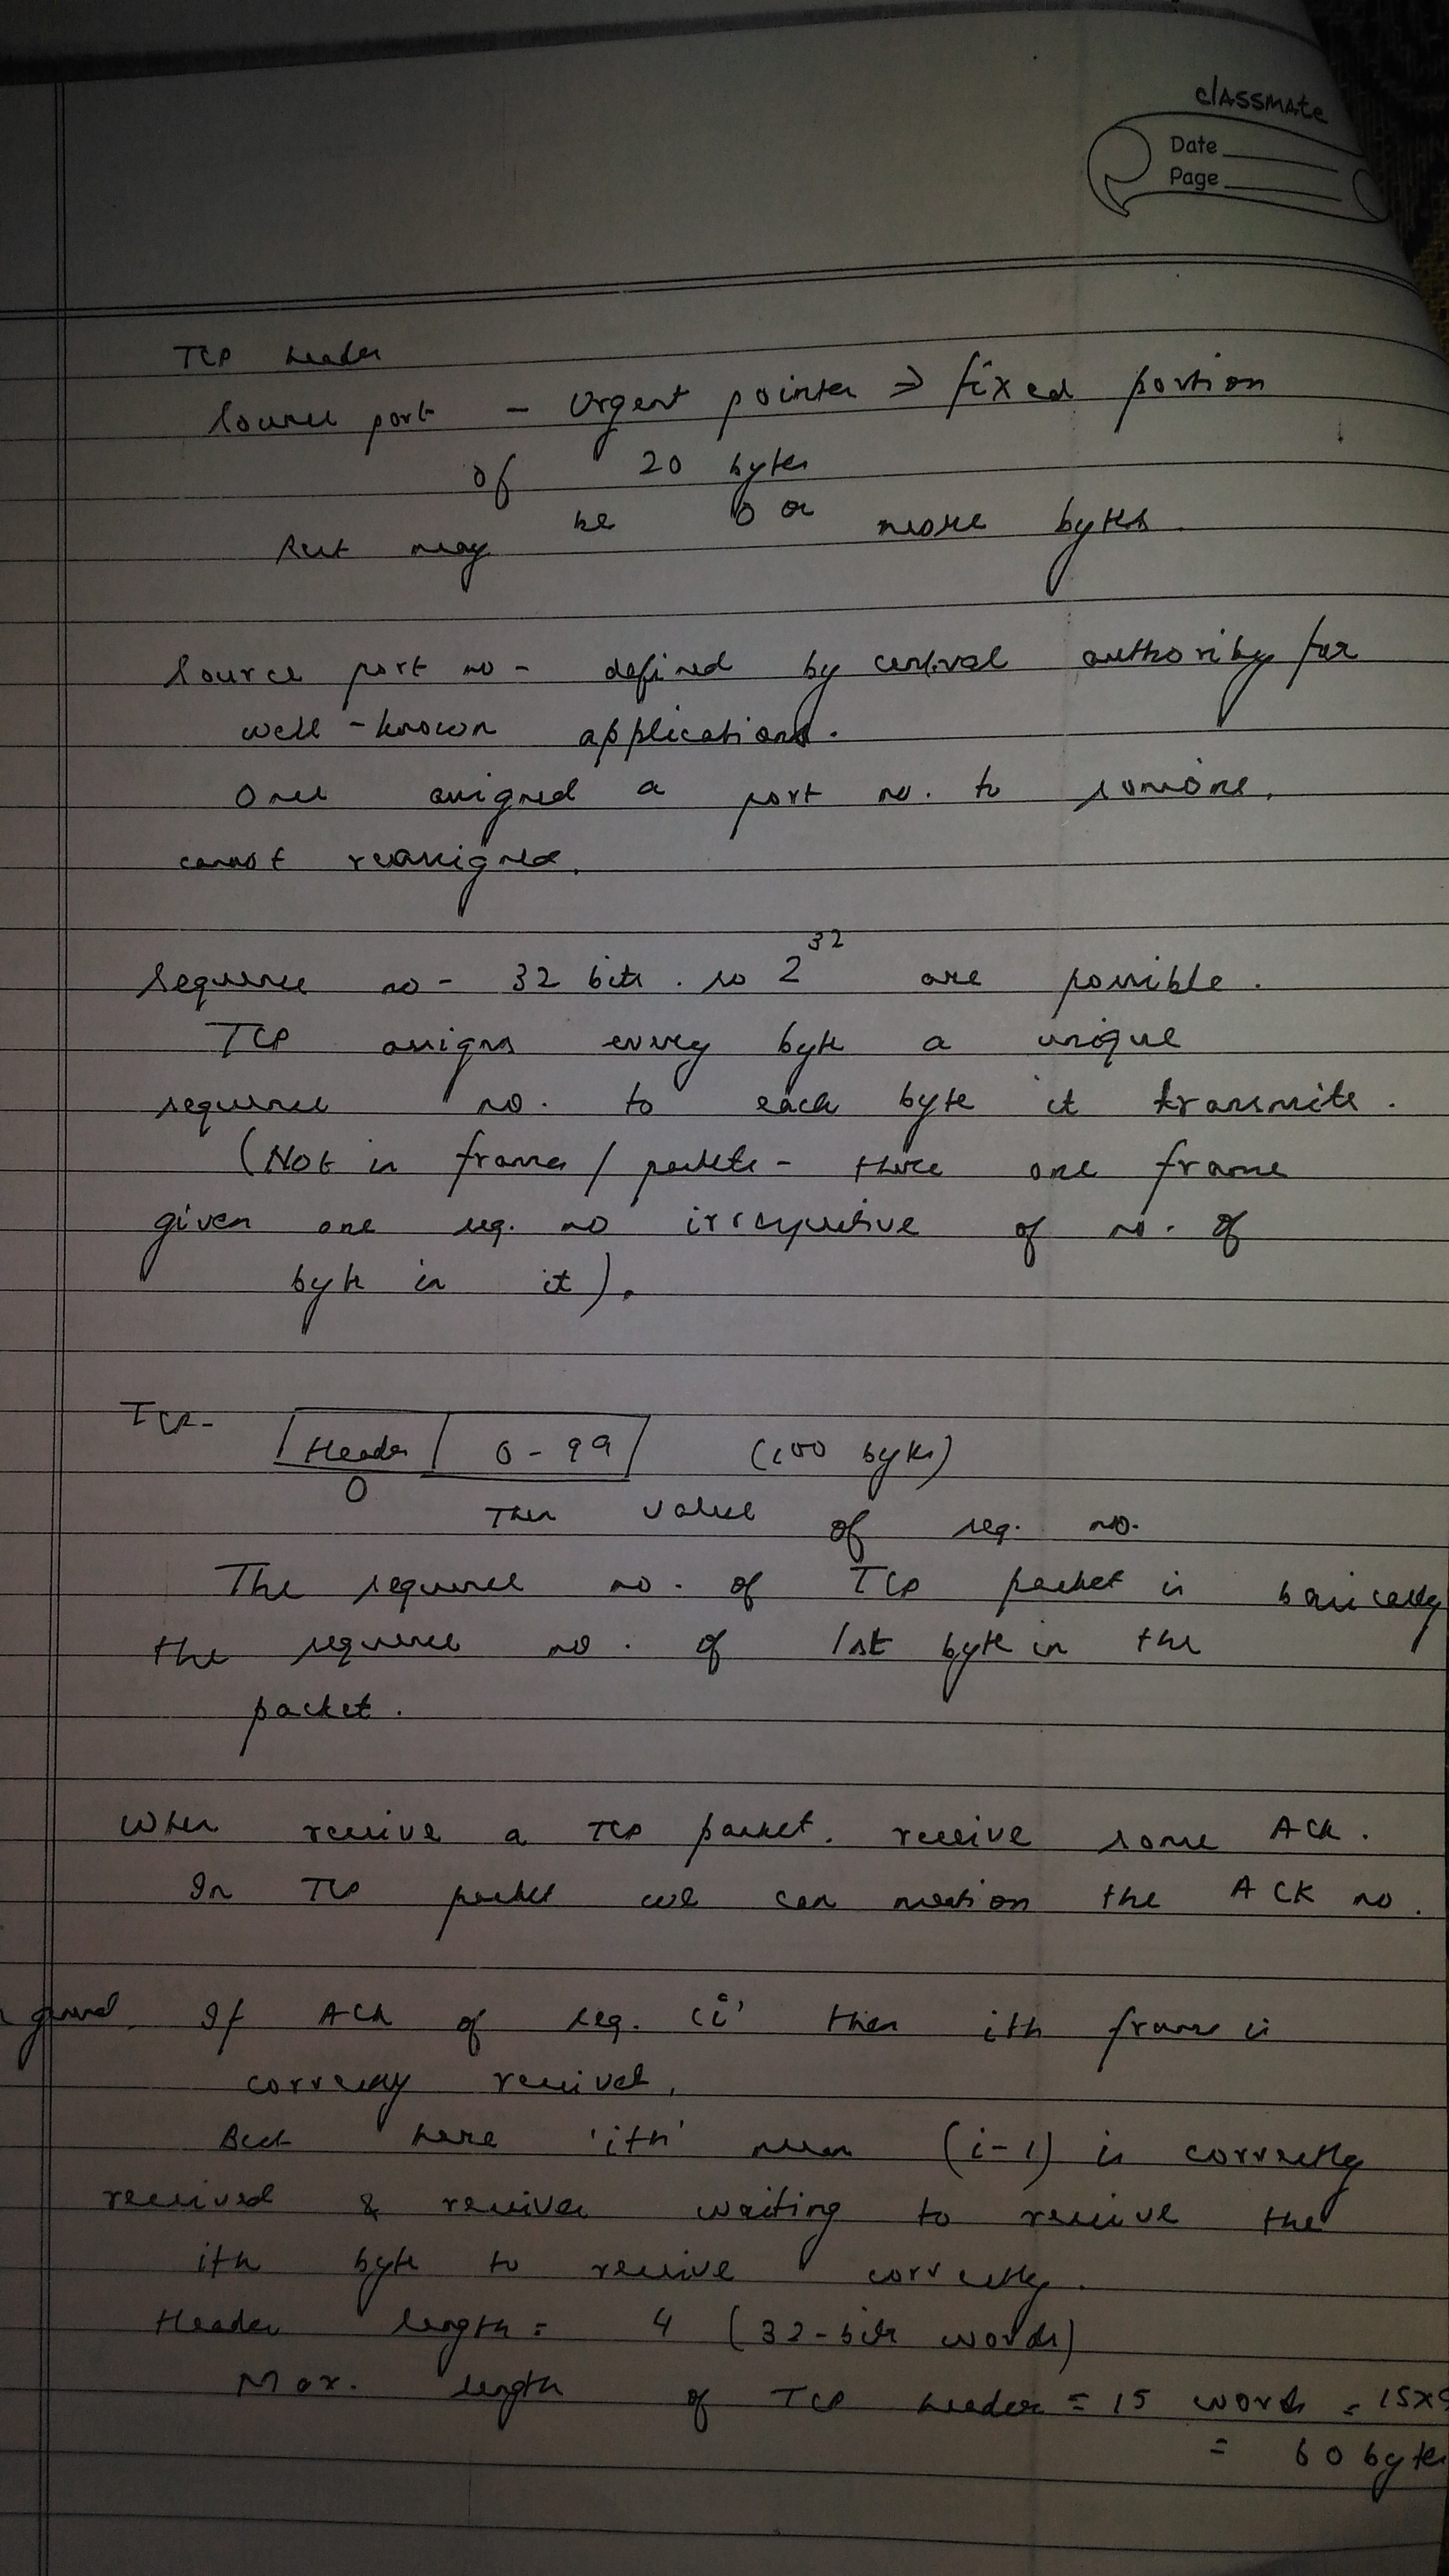 classmate
Date
Page
TCP header
Source port - Urgent pointer ⇒ fixed portion
of 20 bytes
But may be 0 or more bytes.
Source port no - defined by central authority for
well-known applications.
Once assigned a port no. to someone,
cannot reassigned.
Sequence no - 32 bits. so 2^32 are possible.
TCP assigns every byte a unique
sequence no. to each byte it transmits.
(Not in frames / packets - there one frame
given one seq. no irrespective of no. of
byte in it).
TCP- Header 0-99 (100 bytes)
0
Then value of seq. no.
The sequence no. of TCP packet is basically
the sequence no. of 1st byte in the
packet.
When receive a TCP packet. receive some Ack.
In TCP packet we can mention the ACK no.
If Ack of seq. 'i' then ith frame is
correctly received.
But here 'ith' mean (i-1) is correctly
received & receiver waiting to receive the
ith byte to receive correctly.
Header length = 4 (32-bit words)
Max. length of TCP header = 15 words = 15x
= 60 bytes